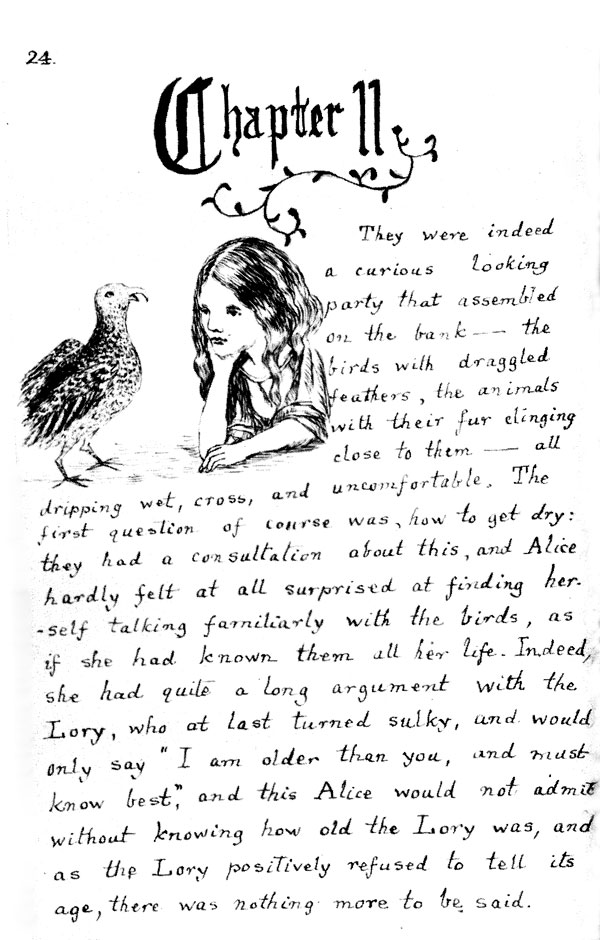 24.
Chapter II
They were indeed
a curious looking
party that assembled
on the bank — the
birds with draggled
feathers, the animals
with their fur clinging
close to them — all
dripping wet, cross, and uncomfortable. The
first question of course was, how to get dry:
they had a consultation about this, and Alice
hardly felt at all surprised at finding her-
-self talking familiarly with the birds, as
if she had known them all her life. Indeed,
she had quite a long argument with the
Lory, who at last turned sulky, and would
only say "I am older than you, and must
know best", and this Alice would not admit
without knowing how old the Lory was, and
as the Lory positively refused to tell its
age, there was nothing more to be said.